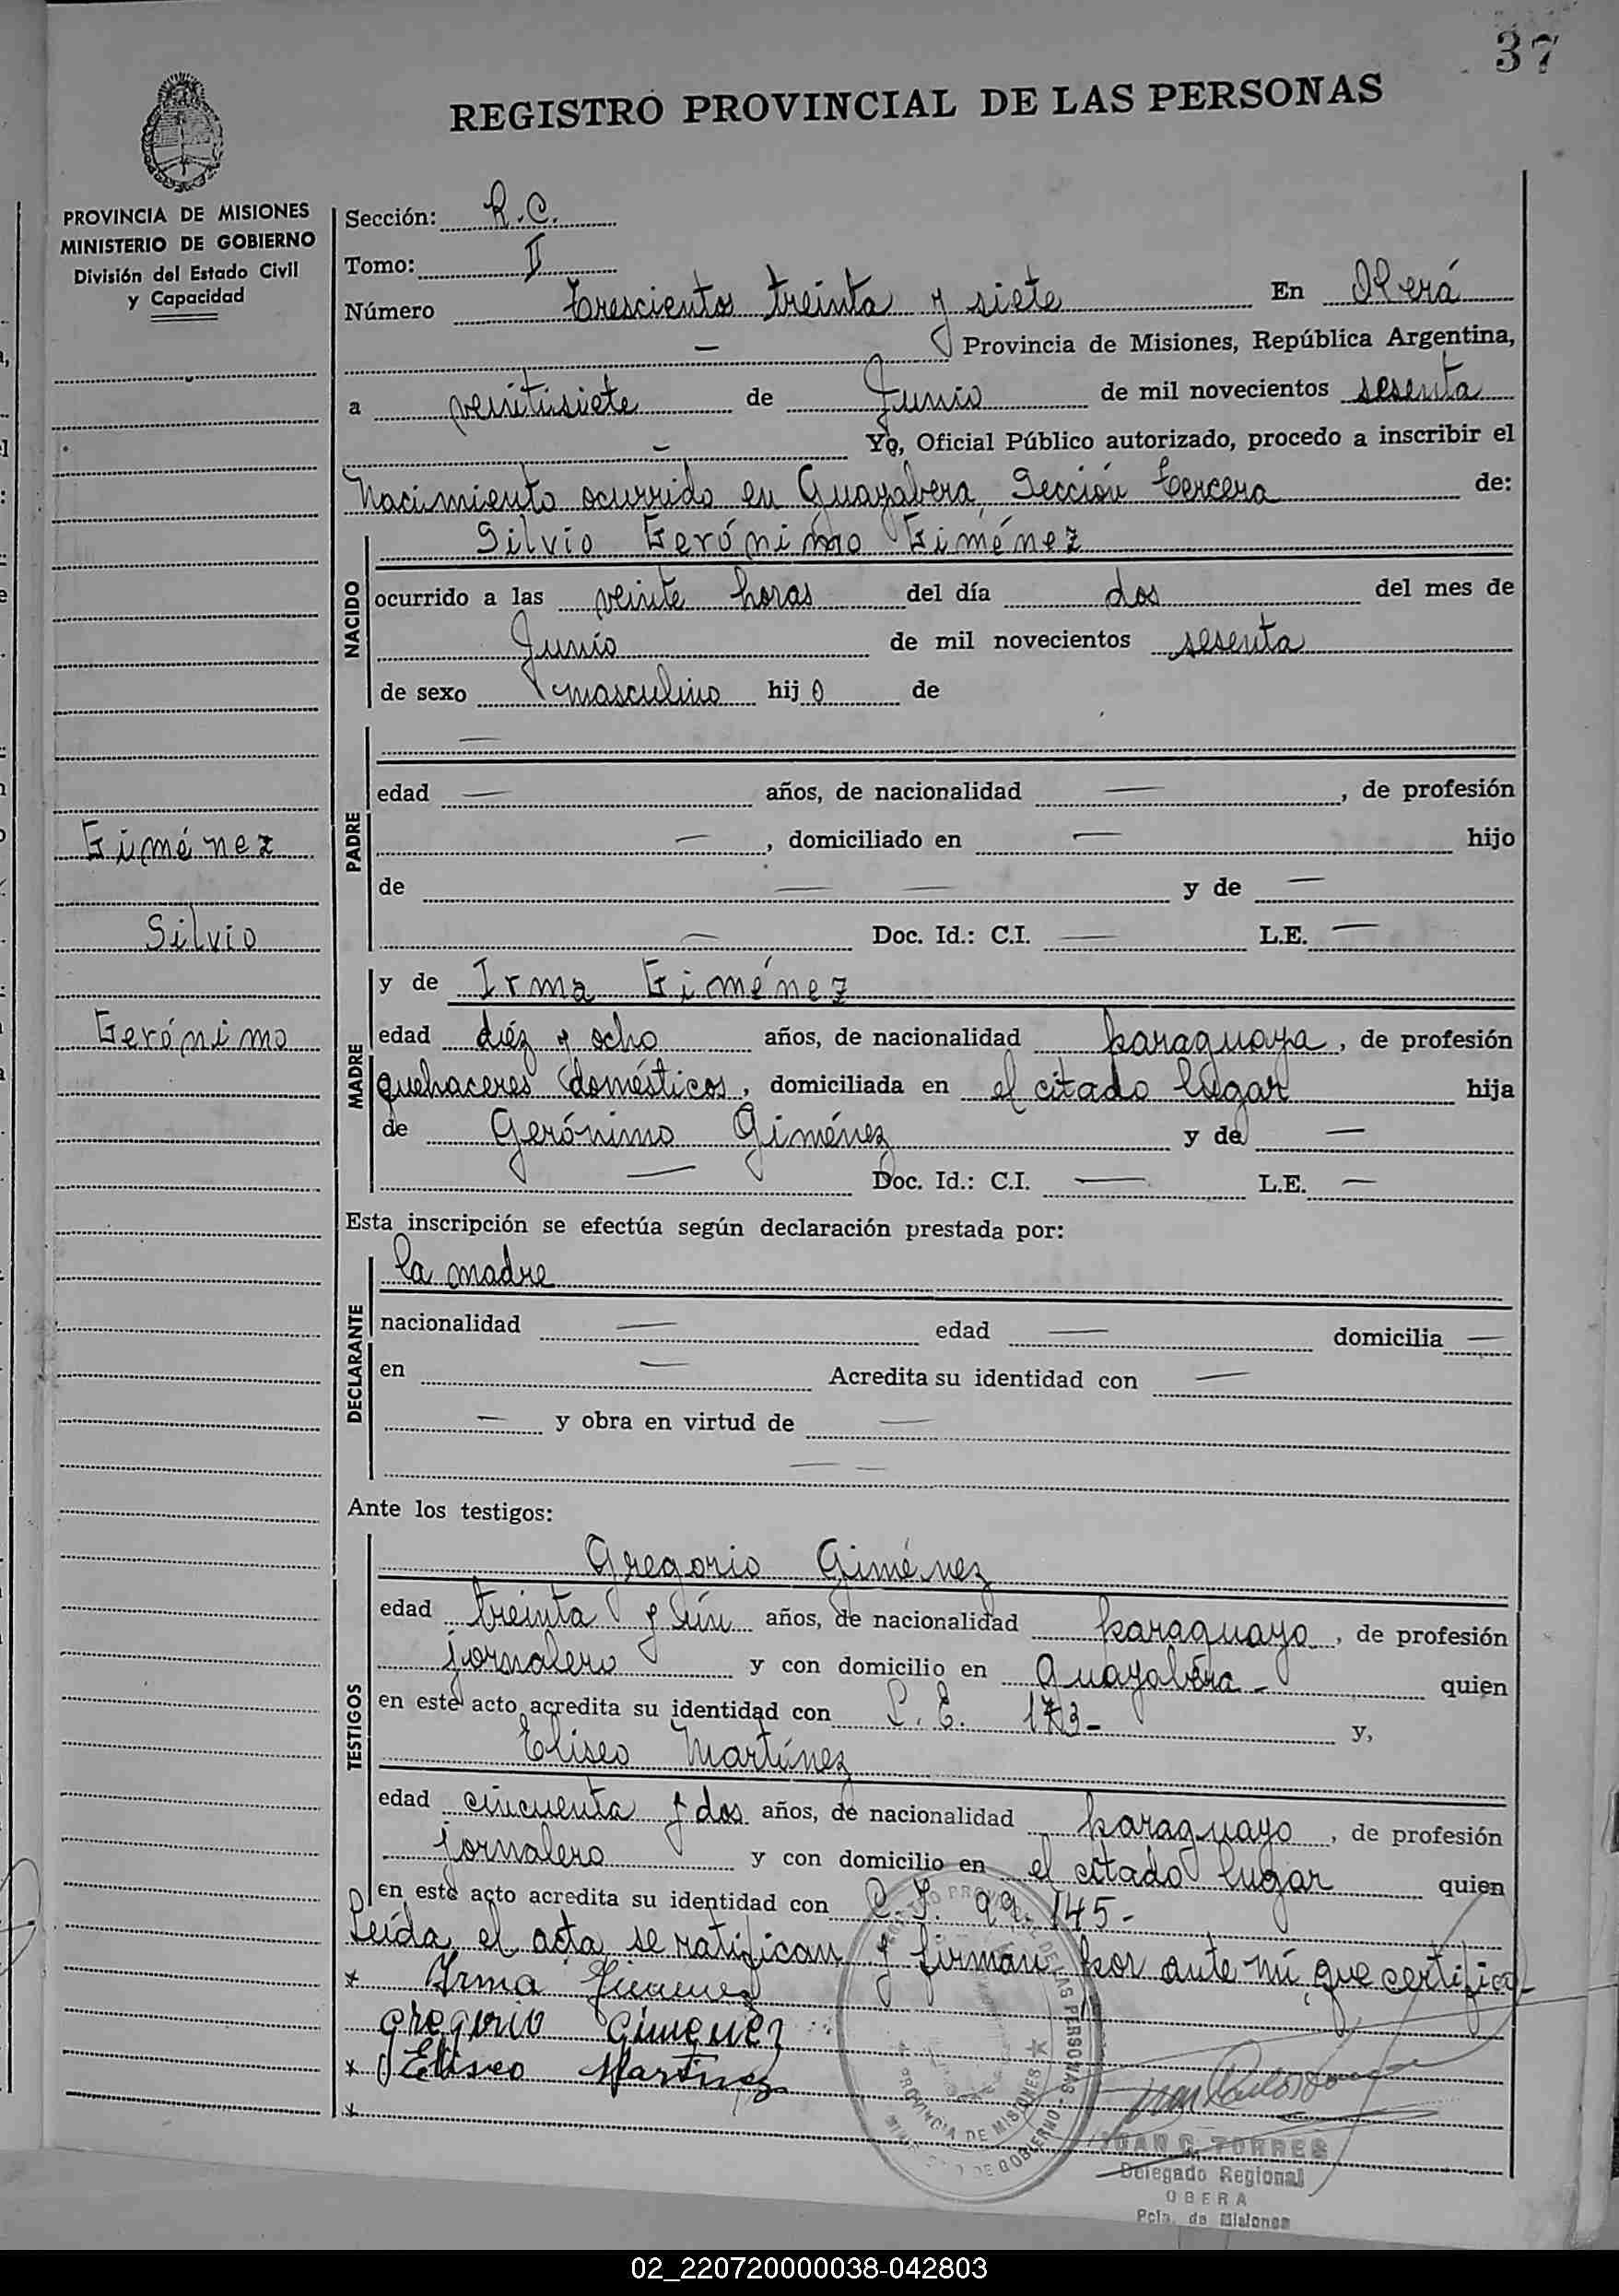 37
REGISTRO PROVINCIAL DE LAS PERSONAS
PROVINCIA DE MISIONES
MINISTERIO DE GOBIERNO
División del Estado Civil
y Capacidad
Sección: R.C.
Tomo: II
Número Trescientos treinta y siete En Oberá
— Provincia de Misiones, República Argentina,
a veintisiete de Junio de mil novecientos sesenta
— Yo, Oficial Público autorizado, procedo a inscribir el
Nacimiento ocurrido en Guayabera, Sección tercera de:
NACIDO
Silvio Gerónimo Giménez
ocurrido a las veinte horas del día dos del mes de
Junio de mil novecientos sesenta
de sexo masculino hijo de
PADRE
—
edad — años, de nacionalidad —, de profesión
—, domiciliado en — hijo
de — — y de —
— Doc. Id.: C.I. — L.E. —
Giménez
Silvio
Gerónimo
MADRE
y de Irma Giménez
edad diéz y ocho años, de nacionalidad paraguaya, de profesión
quehaceres domésticos, domiciliada en el citado lugar hija
de Gerónimo Giménez y de —
— Doc. Id.: C.I. — L.E. —
Esta inscripción se efectúa según declaración prestada por:
DECLARANTE
la madre
nacionalidad — edad — domicilia —
en — Acredita su identidad con —
— y obra en virtud de —
— —
Ante los testigos:
TESTIGOS
Gregorio Giménez
edad treinta y ún años, de nacionalidad paraguayo, de profesión
jornalero y con domicilio en Guayabera - quien
en este acto acredita su identidad con L.E. 173- y,
Eliseo Martínez
edad cincuenta y dos años, de nacionalidad paraguayo, de profesión
jornalero y con domicilio en el citado lugar quien
en este acto acredita su identidad con C.I. 99.145-
Leída el acta se ratifican y firman por ante mí que certifico-
Irma Gimenez
Gregorio Gimenez
Eliseo Martinez
PROVINCIA DE MISIONES
JUAN C. TORRES
Delegado Regional
OBERA
Pcia. de Misiones
02_220720000038-042803